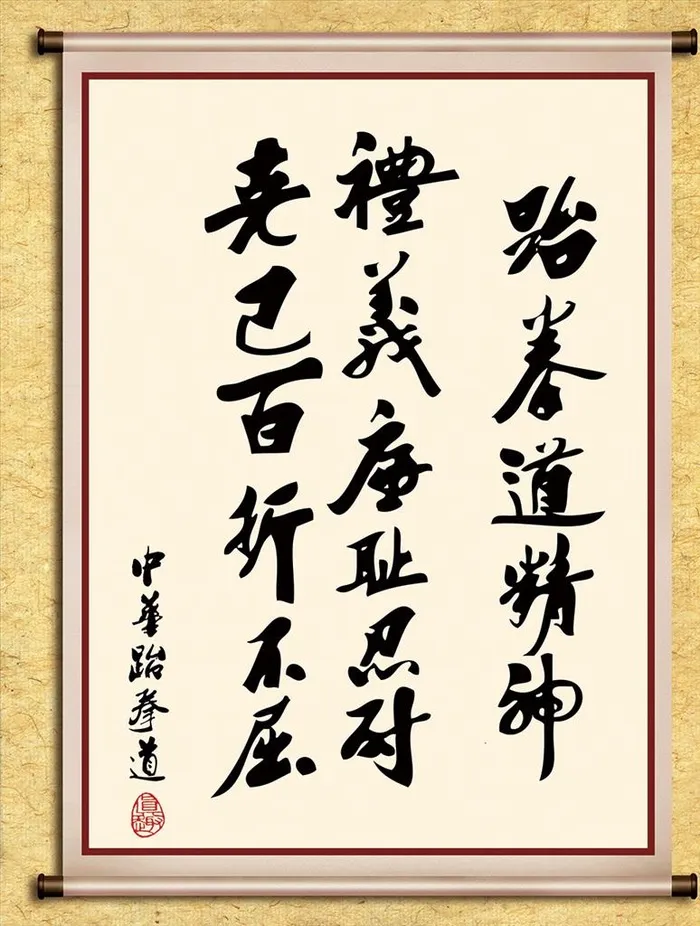 跆拳道精神
禮義廉耻忍耐
克己百折不屈
中華跆拳道